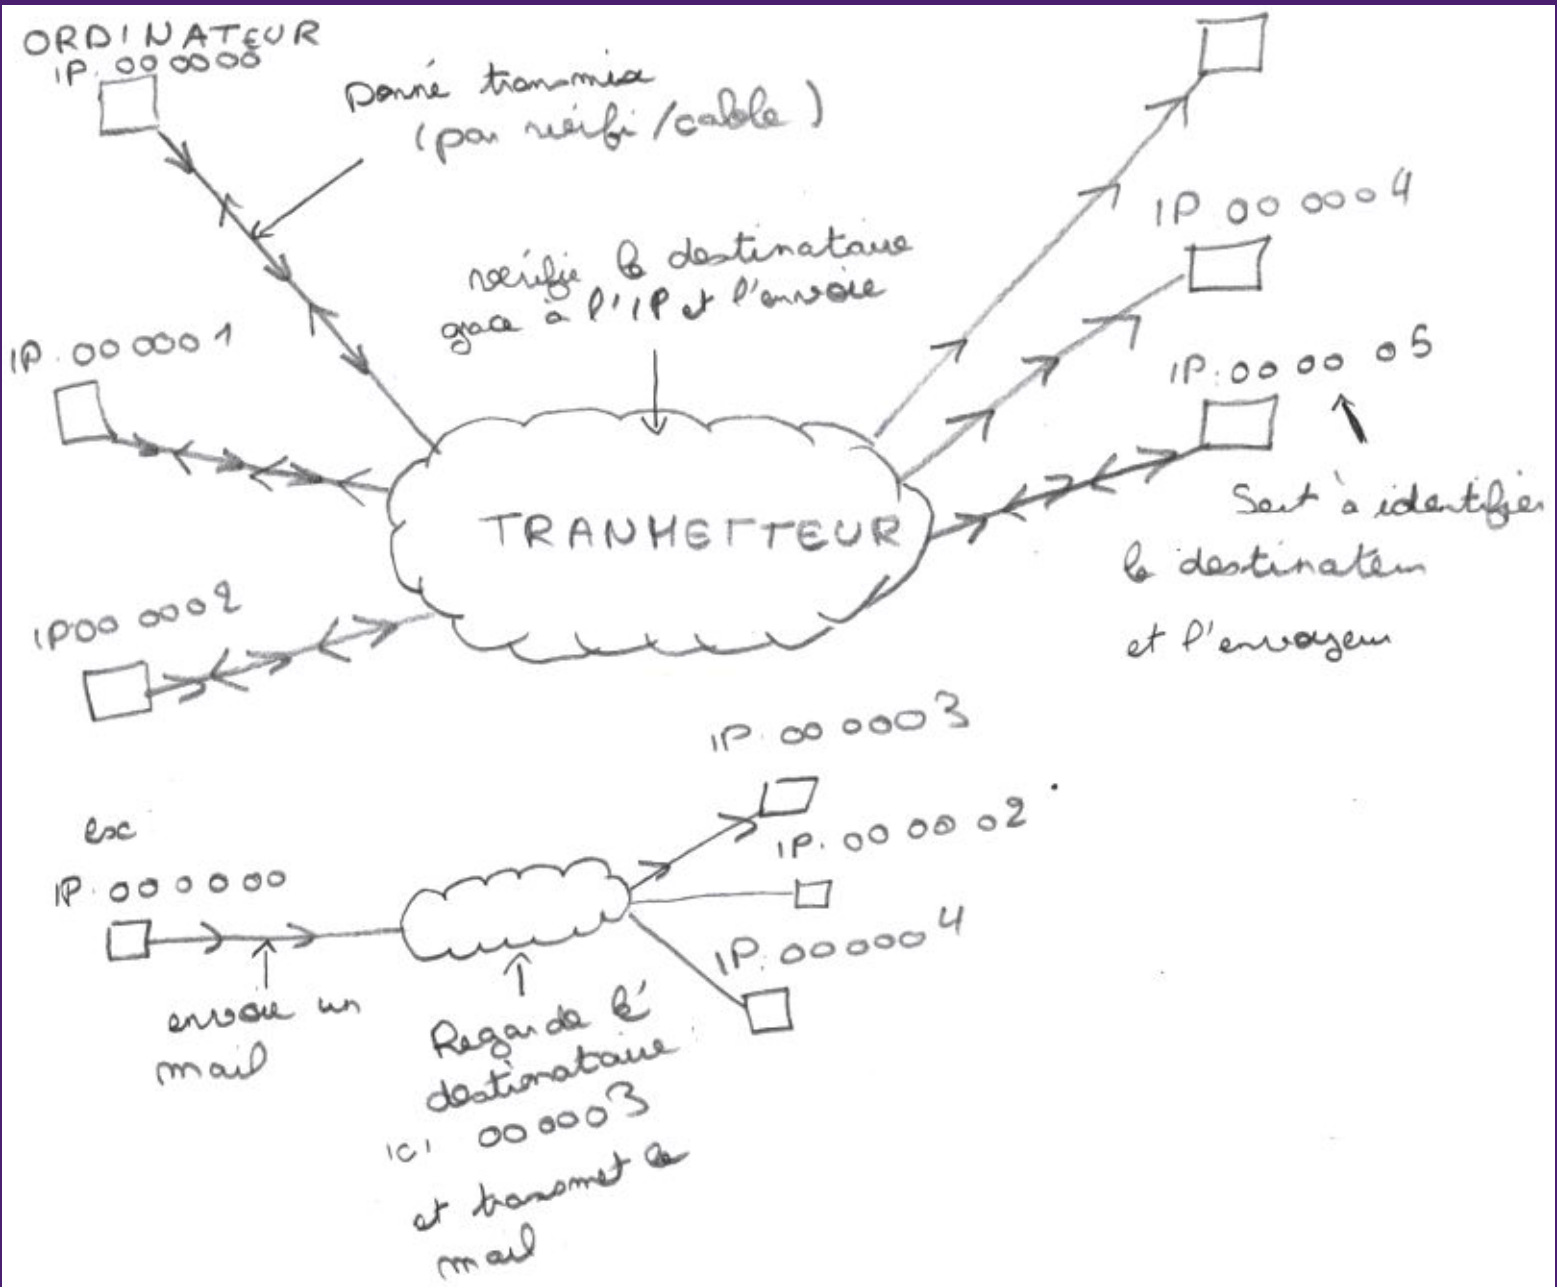 ORDINATEUR
IP. 000000
Donné transmise
(par wéifi/cable)
IP 00 0004
verifie le destinataire
grace à l'IP et l'envoie
IP. 000001
IP:0000 05
TRANMETTEUR
Sert à identifier
le destinateur
et l'envoyeur
IP00 0002
IP. 000003
ex
IP. 0000 02
IP. 000000
IP. 000004
envoie un
mail
Regarde lé
destinataire
ici 000003
et transmet le
mail